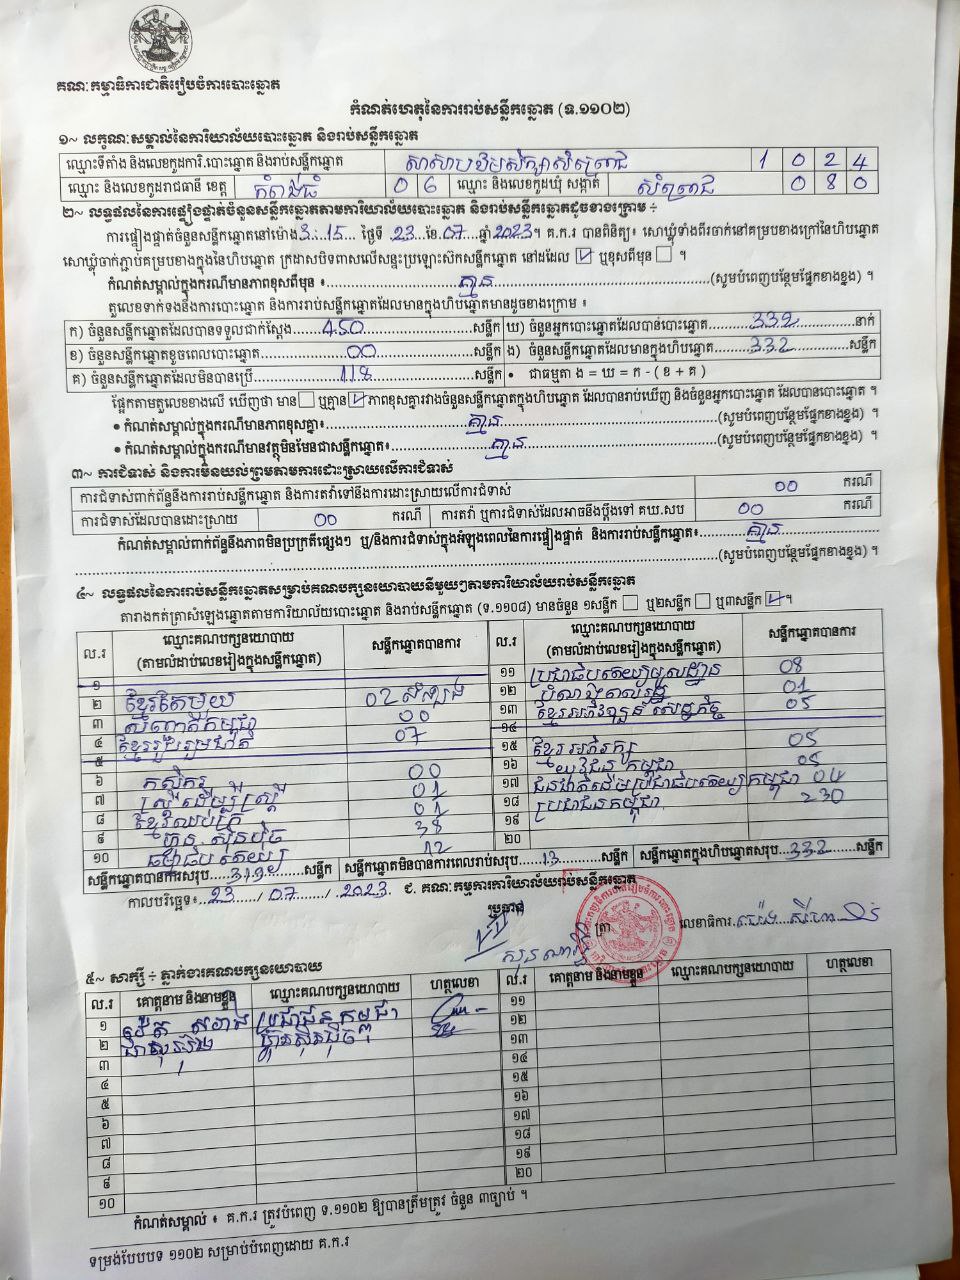 គណៈកម្មាធិការជាតិរៀបចំការបោះឆ្នោត
កំណត់ហេតុនៃការរាប់សន្លឹកឆ្នោត (ទ.១១០២)
១~ លក្ខណៈសម្គាល់នៃការិយាល័យបោះឆ្នោត និងរាប់សន្លឹកឆ្នោត
ឈ្មោះទីតាំង និងលេខកូដការិ.បោះឆ្នោត និងរាប់សន្លឹកឆ្នោត 1 0 2 4
ឈ្មោះ និងលេខកូដរាជធានី ខេត្ត កំពង់ធំ 0 6 ឈ្មោះ និងលេខកូដឃុំ សង្កាត់ 0 8 0
២~ លទ្ធផលនៃការផ្ទៀងផ្ទាត់ចំនួនសន្លឹកឆ្នោតតាមការិយាល័យបោះឆ្នោត និងរាប់សន្លឹកឆ្នោតដូចខាងក្រោម ÷
ការផ្ទៀងផ្ទាត់ចំនួនសន្លឹកឆ្នោតនៅម៉ោង 3:15 ថ្ងៃទី 23 ខែ 07 ឆ្នាំ 2023។ គ.ក.រ បានពិនិត្យ៖ សោឃ្លុំទាំងពីរចាក់នៅគម្របខាងក្រៅនៃហិបឆ្នោត
សោឃ្លុំចាក់ភ្ជាប់គម្របខាងក្នុងនៃហិបឆ្នោត ក្រដាសបិទពាសលើសន្ទះប្រឡោះសឹកសន្លឹកឆ្នោត នៅដដែល ☑ ឬខុសពីមុន ☐ ។
កំណត់សម្គាល់ក្នុងករណីមានភាពខុសពីមុន ៖ គ្មាន (សូមបំពេញបន្ថែមផ្នែកខាងខ្នង) ។
តួលេខទាក់ទងនឹងការបោះឆ្នោត និងការរាប់សន្លឹកឆ្នោតដែលមានក្នុងហិបឆ្នោតមានដូចខាងក្រោម ៖
ក) ចំនួនសន្លឹកឆ្នោតដែលបានទទួលជាក់ស្តែង 450 សន្លឹក ឃ) ចំនួនអ្នកបោះឆ្នោតដែលបានបោះឆ្នោត 332 នាក់
ខ) ចំនួនសន្លឹកឆ្នោតខូចពេលបោះឆ្នោត 00 សន្លឹក ង) ចំនួនសន្លឹកឆ្នោតដែលមានក្នុងហិបឆ្នោត 332 សន្លឹក
គ) ចំនួនសន្លឹកឆ្នោតដែលមិនបានប្រើ 118 សន្លឹក • ជាធម្មតា ង = ឃ = ក - ( ខ + គ )
ផ្អែកតាមតួលេខខាងលើ ឃើញថា មាន ☐ ឬគ្មាន ☑ ភាពខុសគ្នារវាងចំនួនសន្លឹកឆ្នោតក្នុងហិបឆ្នោត ដែលបានរាប់ឃើញ និងចំនួនអ្នកបោះឆ្នោត ដែលបានបោះឆ្នោត ។
• កំណត់សម្គាល់ក្នុងករណីមានភាពខុសគ្នា៖ គ្មាន (សូមបំពេញបន្ថែមផ្នែកខាងខ្នង) ។
• កំណត់សម្គាល់ក្នុងករណីមានវត្ថុមិនមែនជាសន្លឹកឆ្នោត៖ គ្មាន (សូមបំពេញបន្ថែមផ្នែកខាងខ្នង) ។
៣~ ការជំទាស់ និងការមិនយល់ព្រមតាមការដោះស្រាយលើការជំទាស់
ការជំទាស់ពាក់ព័ន្ធនឹងការរាប់សន្លឹកឆ្នោត និងការតវ៉ាទៅនឹងការដោះស្រាយលើការជំទាស់ 00 ករណី
ការជំទាស់ដែលបានដោះស្រាយ 00 ករណី ការតវ៉ា ឬការជំទាស់ដែលអាចនឹងប្តឹងទៅ គឃ.សប 00 ករណី
កំណត់សម្គាល់ពាក់ព័ន្ធនឹងភាពមិនប្រក្រតីផ្សេងៗ ឬ/និងការជំទាស់ក្នុងអំឡុងពេលនៃការផ្ទៀងផ្ទាត់ និងការរាប់សន្លឹកឆ្នោត៖ គ្មាន
(សូមបំពេញបន្ថែមផ្នែកខាងខ្នង) ។
៤~ លទ្ធផលនៃការរាប់សន្លឹកឆ្នោតសម្រាប់គណបក្សនយោបាយនីមួយៗតាមការិយាល័យរាប់សន្លឹកឆ្នោត
តារាងកត់ត្រាសំឡេងឆ្នោតតាមការិយាល័យបោះឆ្នោត និងរាប់សន្លឹកឆ្នោត (ទ.១១០៨) មានចំនួន ១សន្លឹក ☐ ឬ២សន្លឹក ☐ ឬ៣សន្លឹក ☑ ។
ល.រ ឈ្មោះគណបក្សនយោបាយ (តាមលំដាប់លេខរៀងក្នុងសន្លឹកឆ្នោត) សន្លឹកឆ្នោតបានការ ល.រ ឈ្មោះគណបក្សនយោបាយ (តាមលំដាប់លេខរៀងក្នុងសន្លឹកឆ្នោត) សន្លឹកឆ្នោតបានការ
១
២ ខ្មែរតែមួយ 02
៣ សំបុកឃ្មុំកម្ពុជា 00
៤ ខ្មែររួបរួមជាតិ 07
៥
៦ កសិករ 00
៧ ស្ត្រីដើម្បីស្ត្រី 01
៨ ខ្មែរឈប់ក្រ 01
៩ ហ្វ៊ុនស៊ិនប៉ិច 38
១០ ធម្មាធិបតេយ្យ 12
១១ ប្រជាធិបតេយ្យមូលដ្ឋាន 08
១២ 01
១៣ ខ្មែរអភិវឌ្ឍន៍សេដ្ឋកិច្ច 05
១៤
១៥ ខ្មែរអភិរក្ស 05
១៦ យុវជនកម្ពុជា 05
១៧ ជនជាតិដើមប្រជាធិបតេយ្យកម្ពុជា 04
១៨ ប្រជាជនកម្ពុជា 230
១៩
២០
សន្លឹកឆ្នោតបានការសរុប 319 សន្លឹក សន្លឹកឆ្នោតមិនបានការពេលរាប់សរុប 13 សន្លឹក សន្លឹកឆ្នោតក្នុងហិបឆ្នោតសរុប 332 សន្លឹក
កាលបរិច្ឆេទ៖ 23 / 07 / 2023 ជ. គណៈកម្មការការិយាល័យរាប់សន្លឹកឆ្នោត
ប្រធាន ត្រា លេខាធិការ
៥~ សាក្សី ÷ ភ្នាក់ងារគណបក្សនយោបាយ
ល.រ គោត្តនាម និងនាមខ្លួន ឈ្មោះគណបក្សនយោបាយ ហត្ថលេខា ល.រ គោត្តនាម និងនាមខ្លួន ឈ្មោះគណបក្សនយោបាយ ហត្ថលេខា
១ ប្រជាជនកម្ពុជា ១១
២ ហ្វ៊ុនស៊ិនប៉ិច ១២
៣ ១៣
៤ ១៤
៥ ១៥
៦ ១៦
៧ ១៧
៨ ១៨
៩ ១៩
១០ ២០
កំណត់សម្គាល់ ៖ គ.ក.រ ត្រូវបំពេញ ទ.១១០២ ឱ្យបានត្រឹមត្រូវ ចំនួន ៣ច្បាប់ ។
ទម្រង់បែបបទ ១១០២ សម្រាប់បំពេញដោយ គ.ក.រ